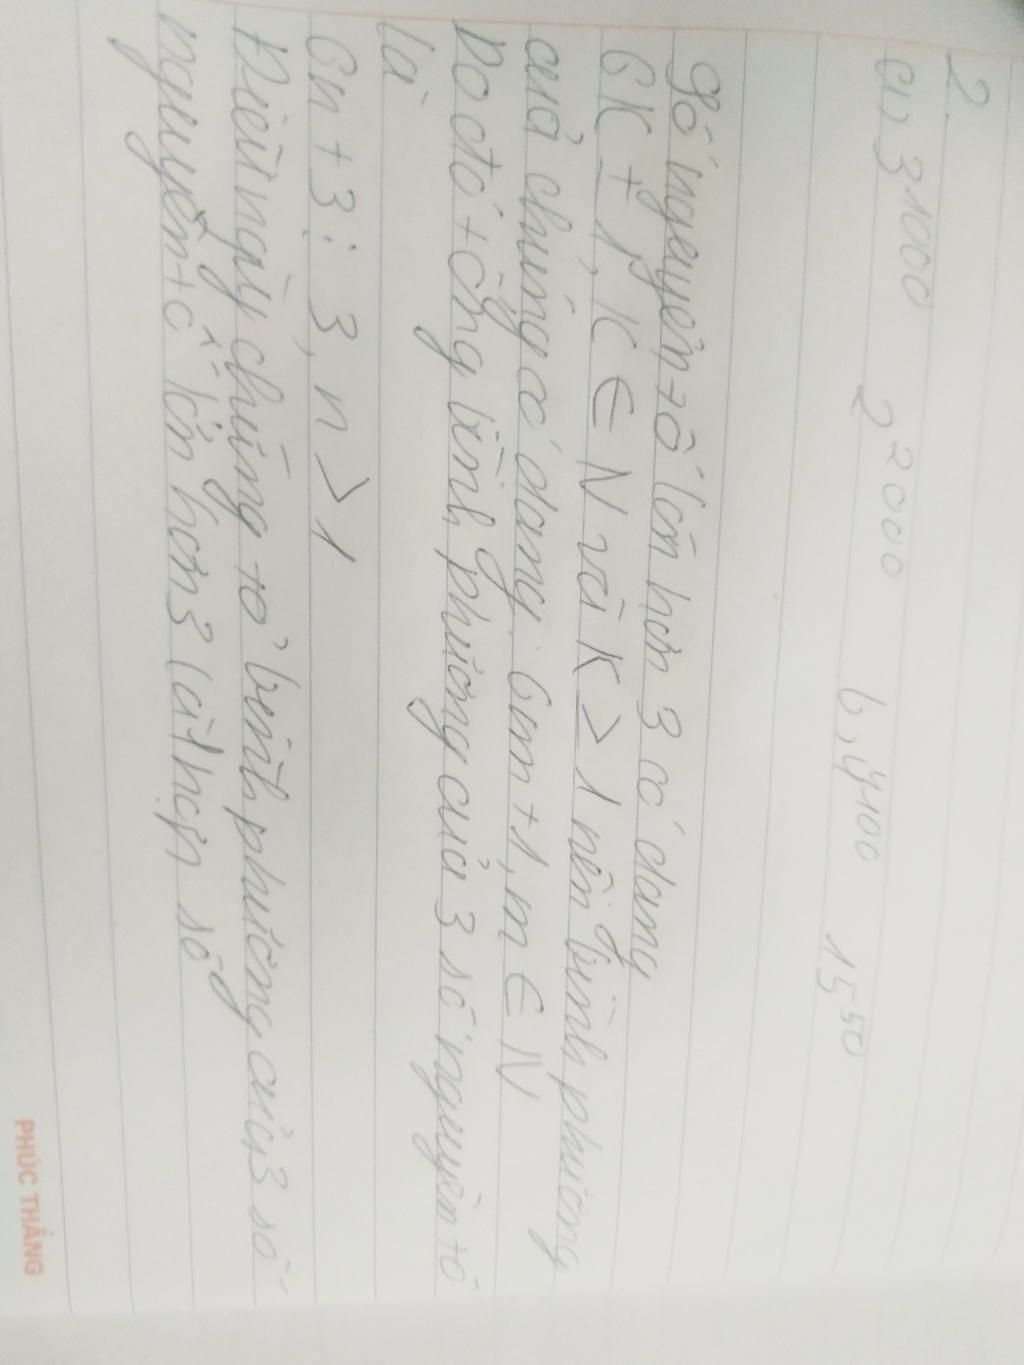 2.
a, 3¹⁰⁰⁰ 2²⁰⁰⁰ b, 4¹⁰⁰ 15⁵⁰
Số nguyên tố lớn hơn 3 có dạng
6K ± 1, K ∈ N và K ≥ 1 nên bình phương
của chúng có dạng: 6m+1, m ∈ N
Do đó tổng bình phương của 3 số nguyên tố
là
6n + 3 ⋮ 3, n > 1
Điều này chứng tỏ bình phương của 3 số
nguyên tố lớn hơn 3 là 1 hợp số
PHÚC THẮNG